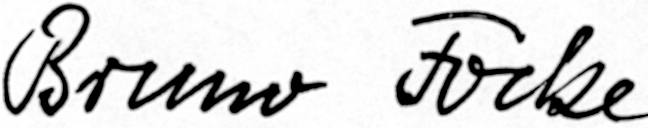 Bruno Focke